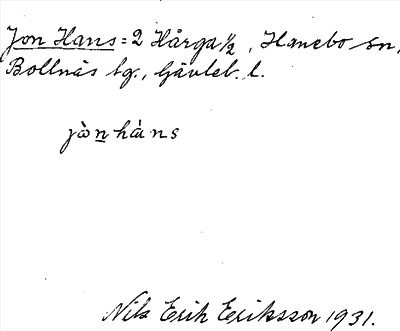 Jon Hans = 2 Hårga 1/2, Hanebo sn,
Bollnäs tg., Gävleb. l.
jònhàns
Nils Erik Eriksson 1931.